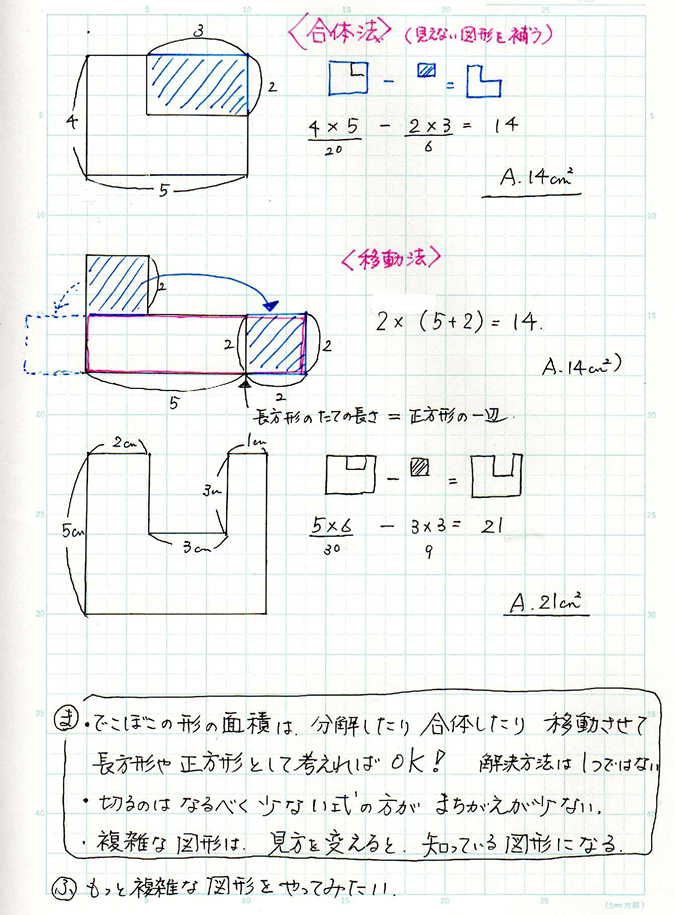 〈合体法〉(見えない図形を補う)
3
2
4
5
- =
4×5 - 2×3 = 14
20 6
A.14cm²
〈移動法〉
2
2×(5+2)=14.
2
2
A.14cm²)
5
2
長方形のたての長さ = 正方形の一辺.
2cm
1cm
3cm
5cm
3cm
- =
5×6 - 3×3 = 21
30 9
A.21cm²
ま ・でこぼこの形の面積は、分解したり 合体したり 移動させて
長方形や正方形として考えればOK! 解決方法は1つではない
・切るのは なるべく少ない式の方が まちがえが少ない.
・複雑な図形は、見方を変えると、知っている図形になる.
ふ もっと複雑な図形をやってみたい.
5
10
15
20
25
30
35
40
(5mm方眼)